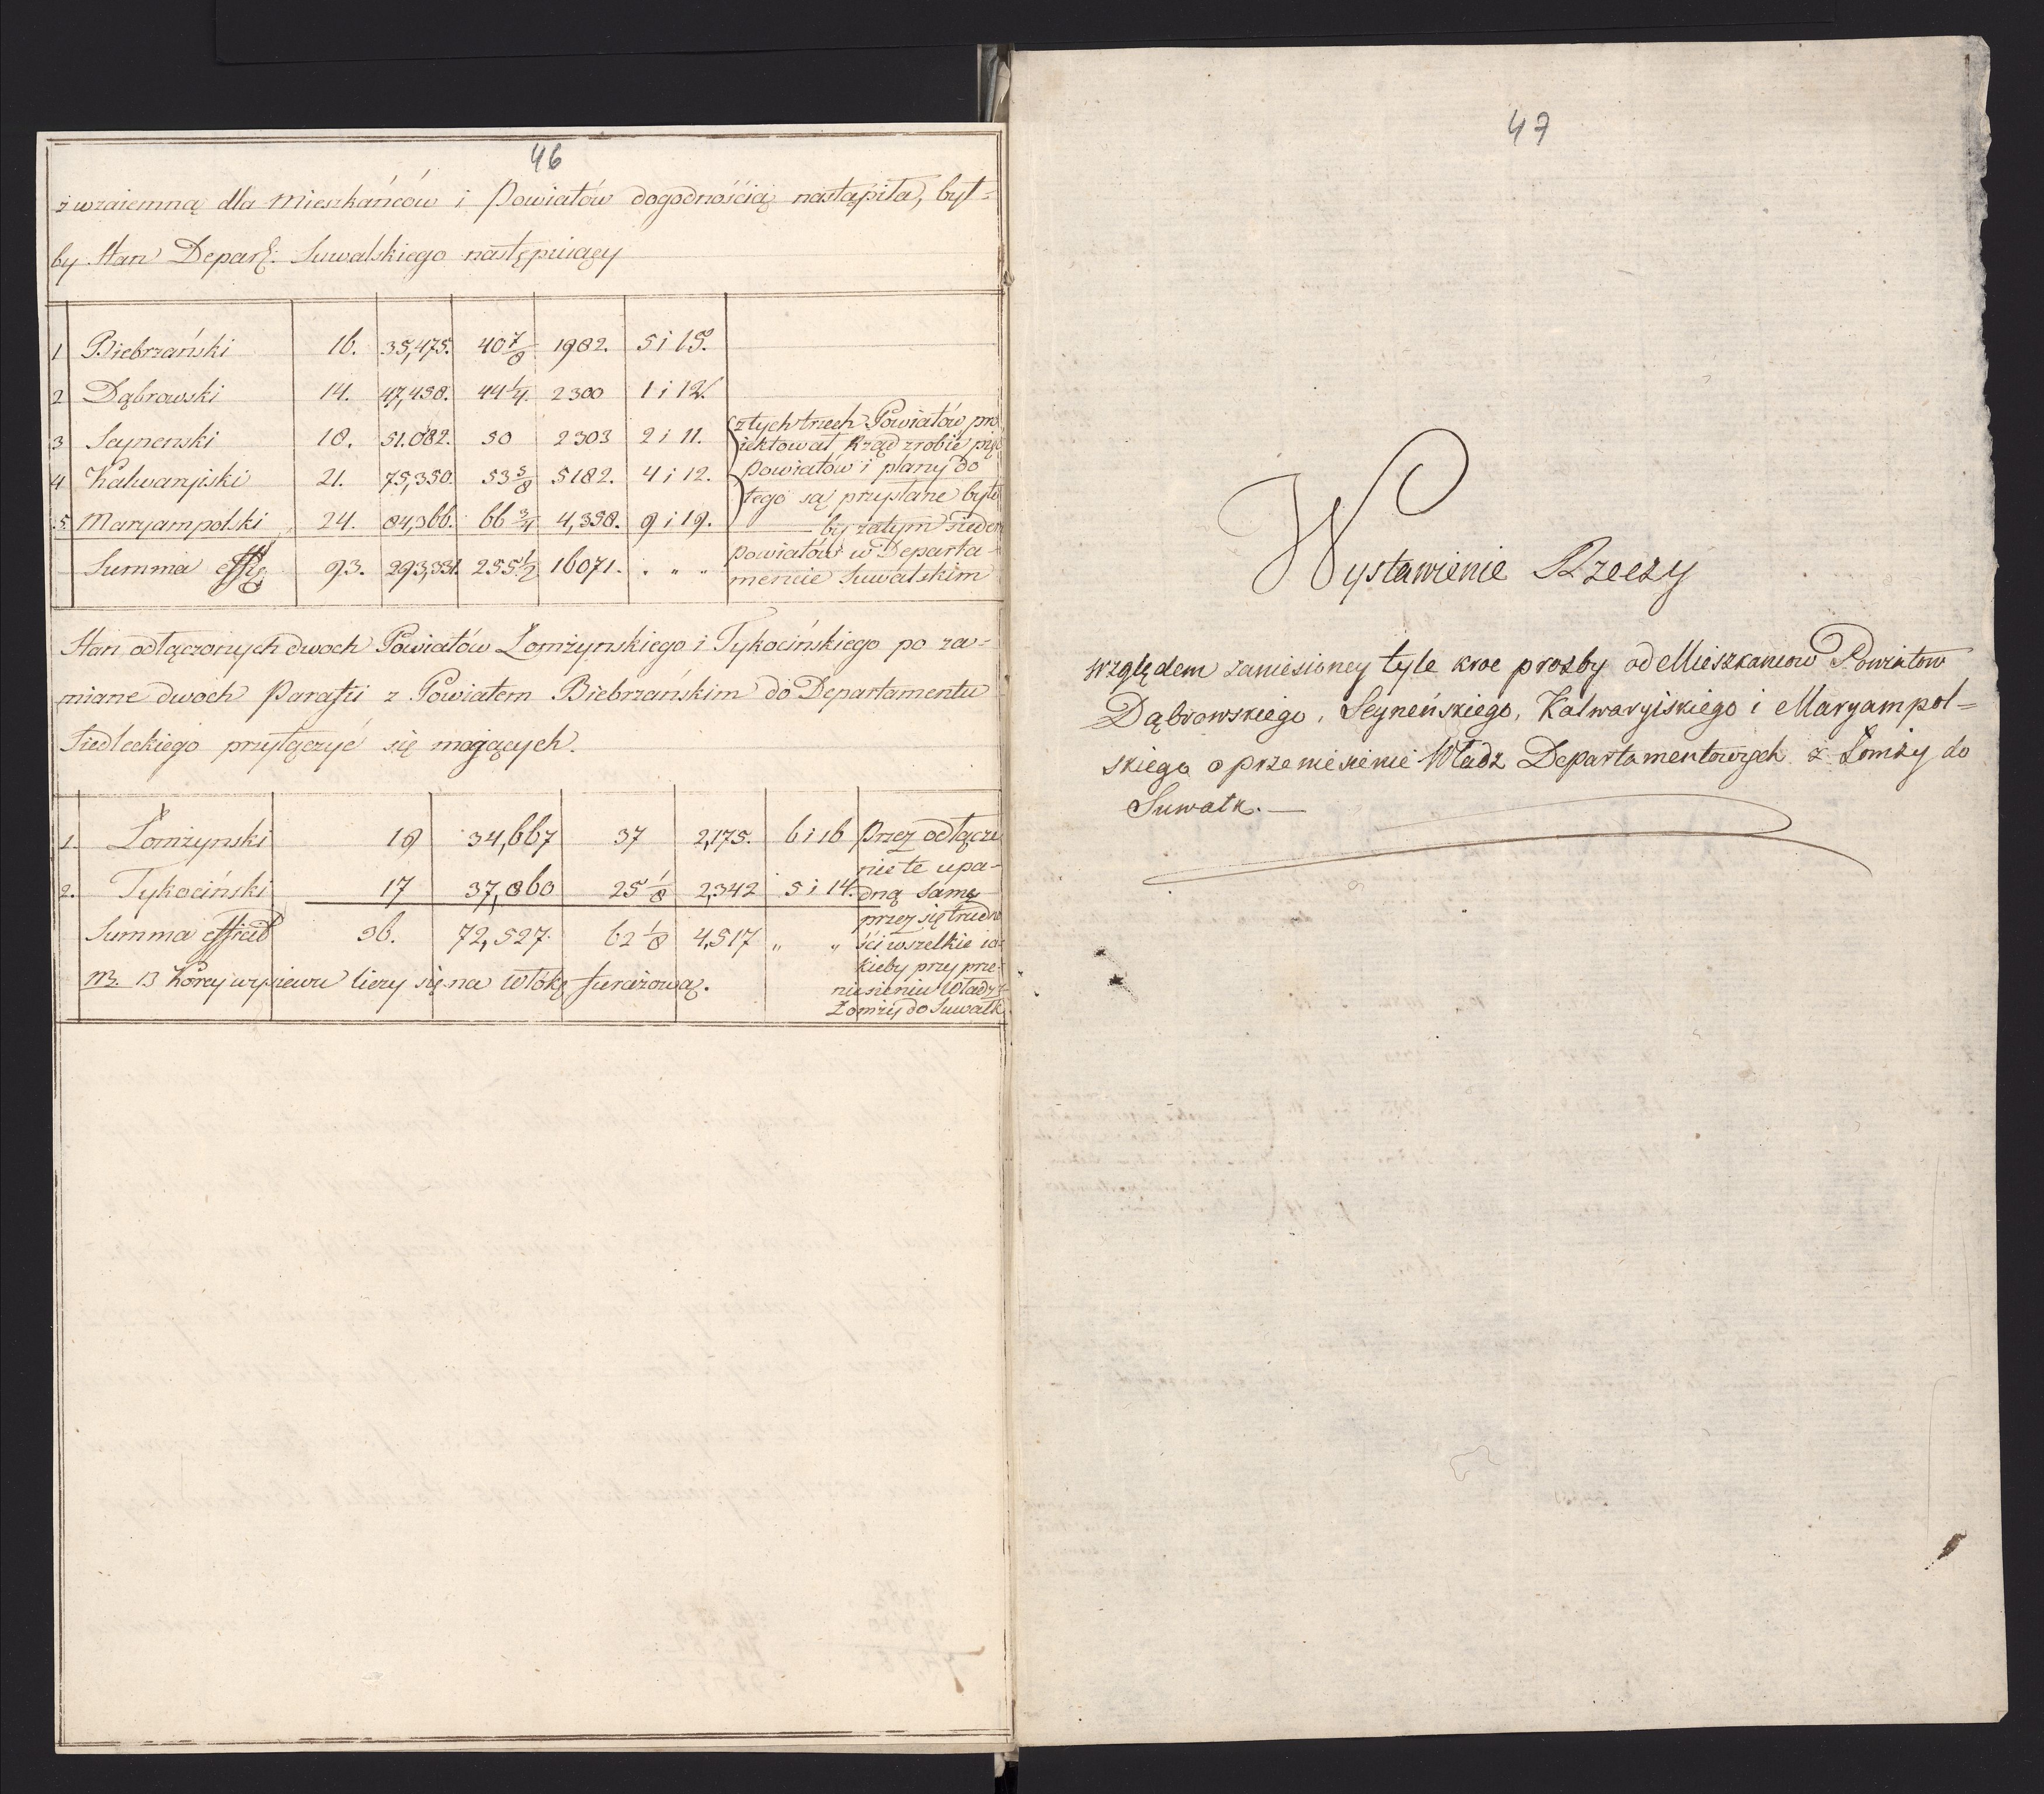 46
z wzaiemną dla Mieszkańców i Powiatów dogodnością nastąpiła, był-
by Stan Depart. Suwalskiego następuiący
1 Biebrzański 16. 35,475. 40 7/8 1982. 5 i 15.
2 Dąbrowski 14. 47,458. 44 1/4. 2300 1 i 12.
3 Seynenski 18. 51.082. 50 2303 2 i 11.
4 Kalwaryiski 21. 75,350. 53 5/8 5182. 4 i 12.
5. Maryampolski 24. 84,366. 66 3/4 4,358. 9 i 19.
Summa 93. 293,331. 255 1/2 16071. . „ „
z tych trzech Powiatów pro-
iektował Rząd zrobić pięć
Powiatów i plany do
tego są przysłane było
by zatym siedem
powiatów w Departa-
mencie Suwalskim
Stan odłączonych dwoch Powiatów Łomżynskiego i Tykocińskiego po za-
mianie dwoch Parafii z Powiatem Biebrzańskim do Departamentu
Siedleckiego przyłączyć się maiących.
1. Łomżynski 19 34,667 37 2,175. 6 i 16
2. Tykociński 17 37,860 25 1/8 2,342 5 i 14.
Summa efficit 36. 72,527. 62 1/8 4,517 „ „
Przez odłącze
nie te upa-
dną same
przez się trudno
ści wszelkie ia-
kieby przy prze-
niesieniu Władz z
Łomży do Suwałk
13 Korcy wysiewu liczy się na Włókę furażową.
47
Wystawienie Rzeczy
względem zaniesioney tyle kroc prozby od Mieszkancow Powiatow
Dąbrowskiego, Seyneńskiego, Kalwaryiskiego i Maryampol=
skiego o przeniesienie Władz Departamentowych z Łomży do
Suwałk.